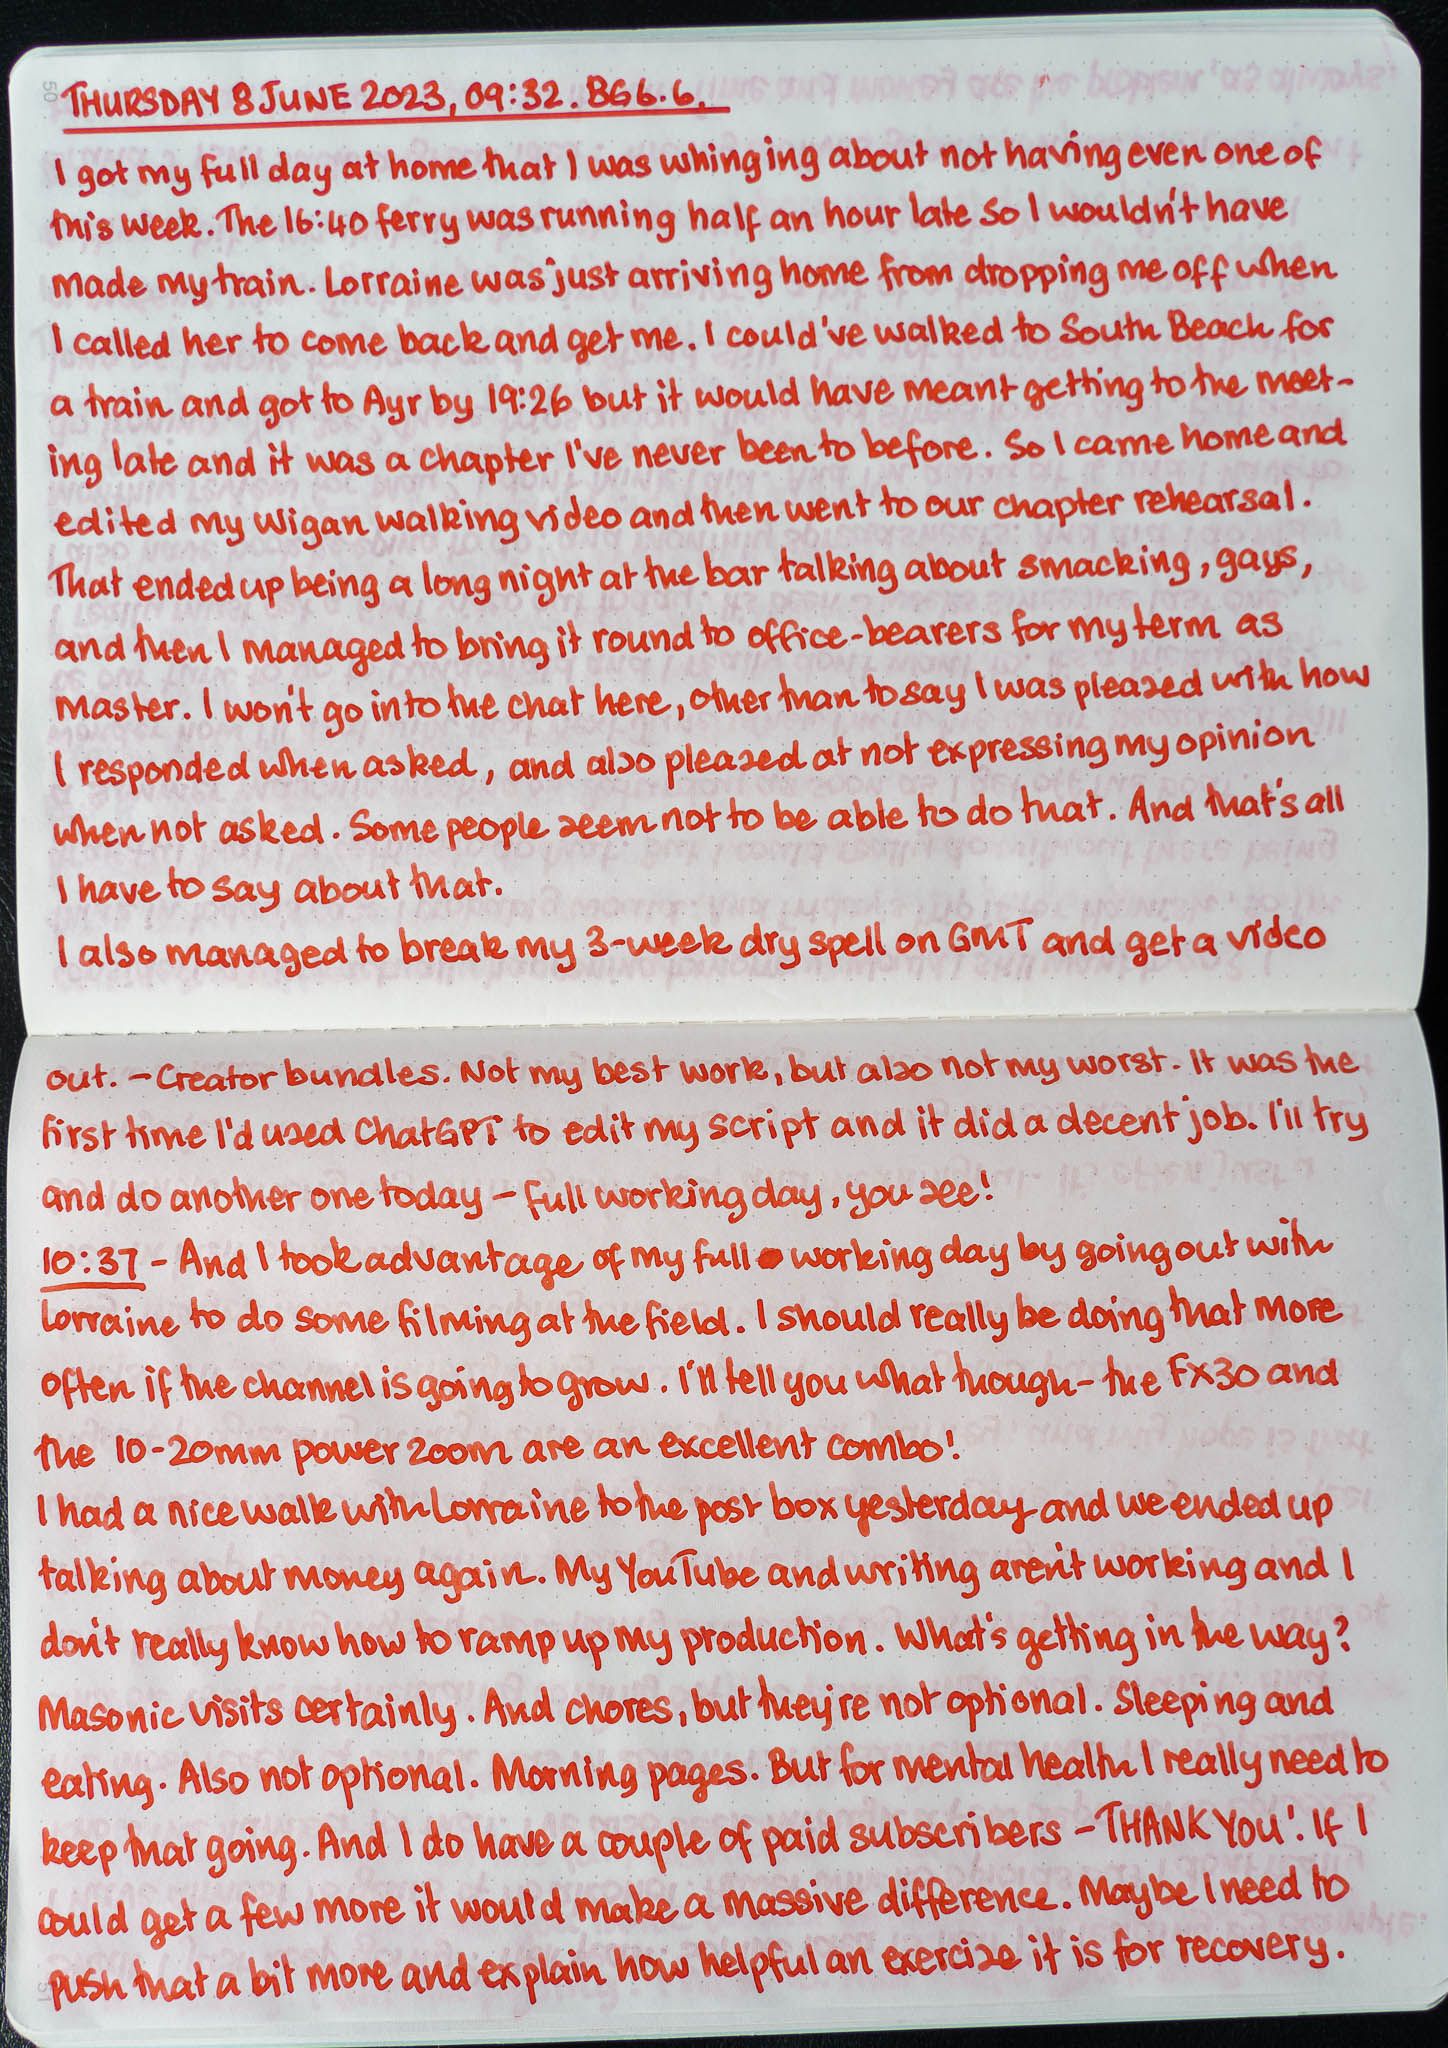 THURSDAY 8 JUNE 2023, 09:32. BG6.6.
I got my full day at home that I was whinging about not having even one of
this week. The 16:40 ferry was running half an hour late so I wouldn't have
made my train. Lorraine was just arriving home from dropping me off when
I called her to come back and get me. I could've walked to South Beach for
a train and got to Ayr by 19:26 but it would have meant getting to the meet-
ing late and it was a chapter I've never been to before. So I came home and
edited my Wigan walking video and then went to our chapter rehearsal.
That ended up being a long night at the bar talking about smacking, gays,
and then I managed to bring it round to office-bearers for my term as
master. I won't go into the chat here, other than to say I was pleased with how
I responded when asked, and also pleased at not expressing my opinion
when not asked. Some people seem not to be able to do that. And that's all
I have to say about that.
I also managed to break my 3-week dry spell on GMT and get a video
out. - Creator bundles. Not my best work, but also not my worst. It was the
first time I'd used ChatGPT to edit my script and it did a decent job. I'll try
and do another one today - full working day, you see!
10:37 - And I took advantage of my full working day by going out with
Lorraine to do some filming at the field. I should really be doing that more
often if the channel is going to grow. I'll tell you what though - the FX30 and
the 10-20mm power zoom are an excellent combo!
I had a nice walk with Lorraine to the post box yesterday and we ended up
talking about money again. My YouTube and writing aren't working and I
don't really know how to ramp up my production. What's getting in the way?
Masonic visits certainly. And chores, but they're not optional. Sleeping and
eating. Also not optional. Morning pages. But for mental health I really need to
keep that going. And I do have a couple of paid subscribers - THANK YOU! If I
could get a few more it would make a massive difference. Maybe I need to
push that a bit more and explain how helpful an exercise it is for recovery.